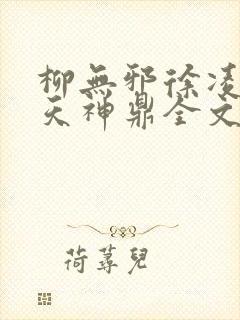 柳無邪徐凌
天神鼎全文
荷蕁兒